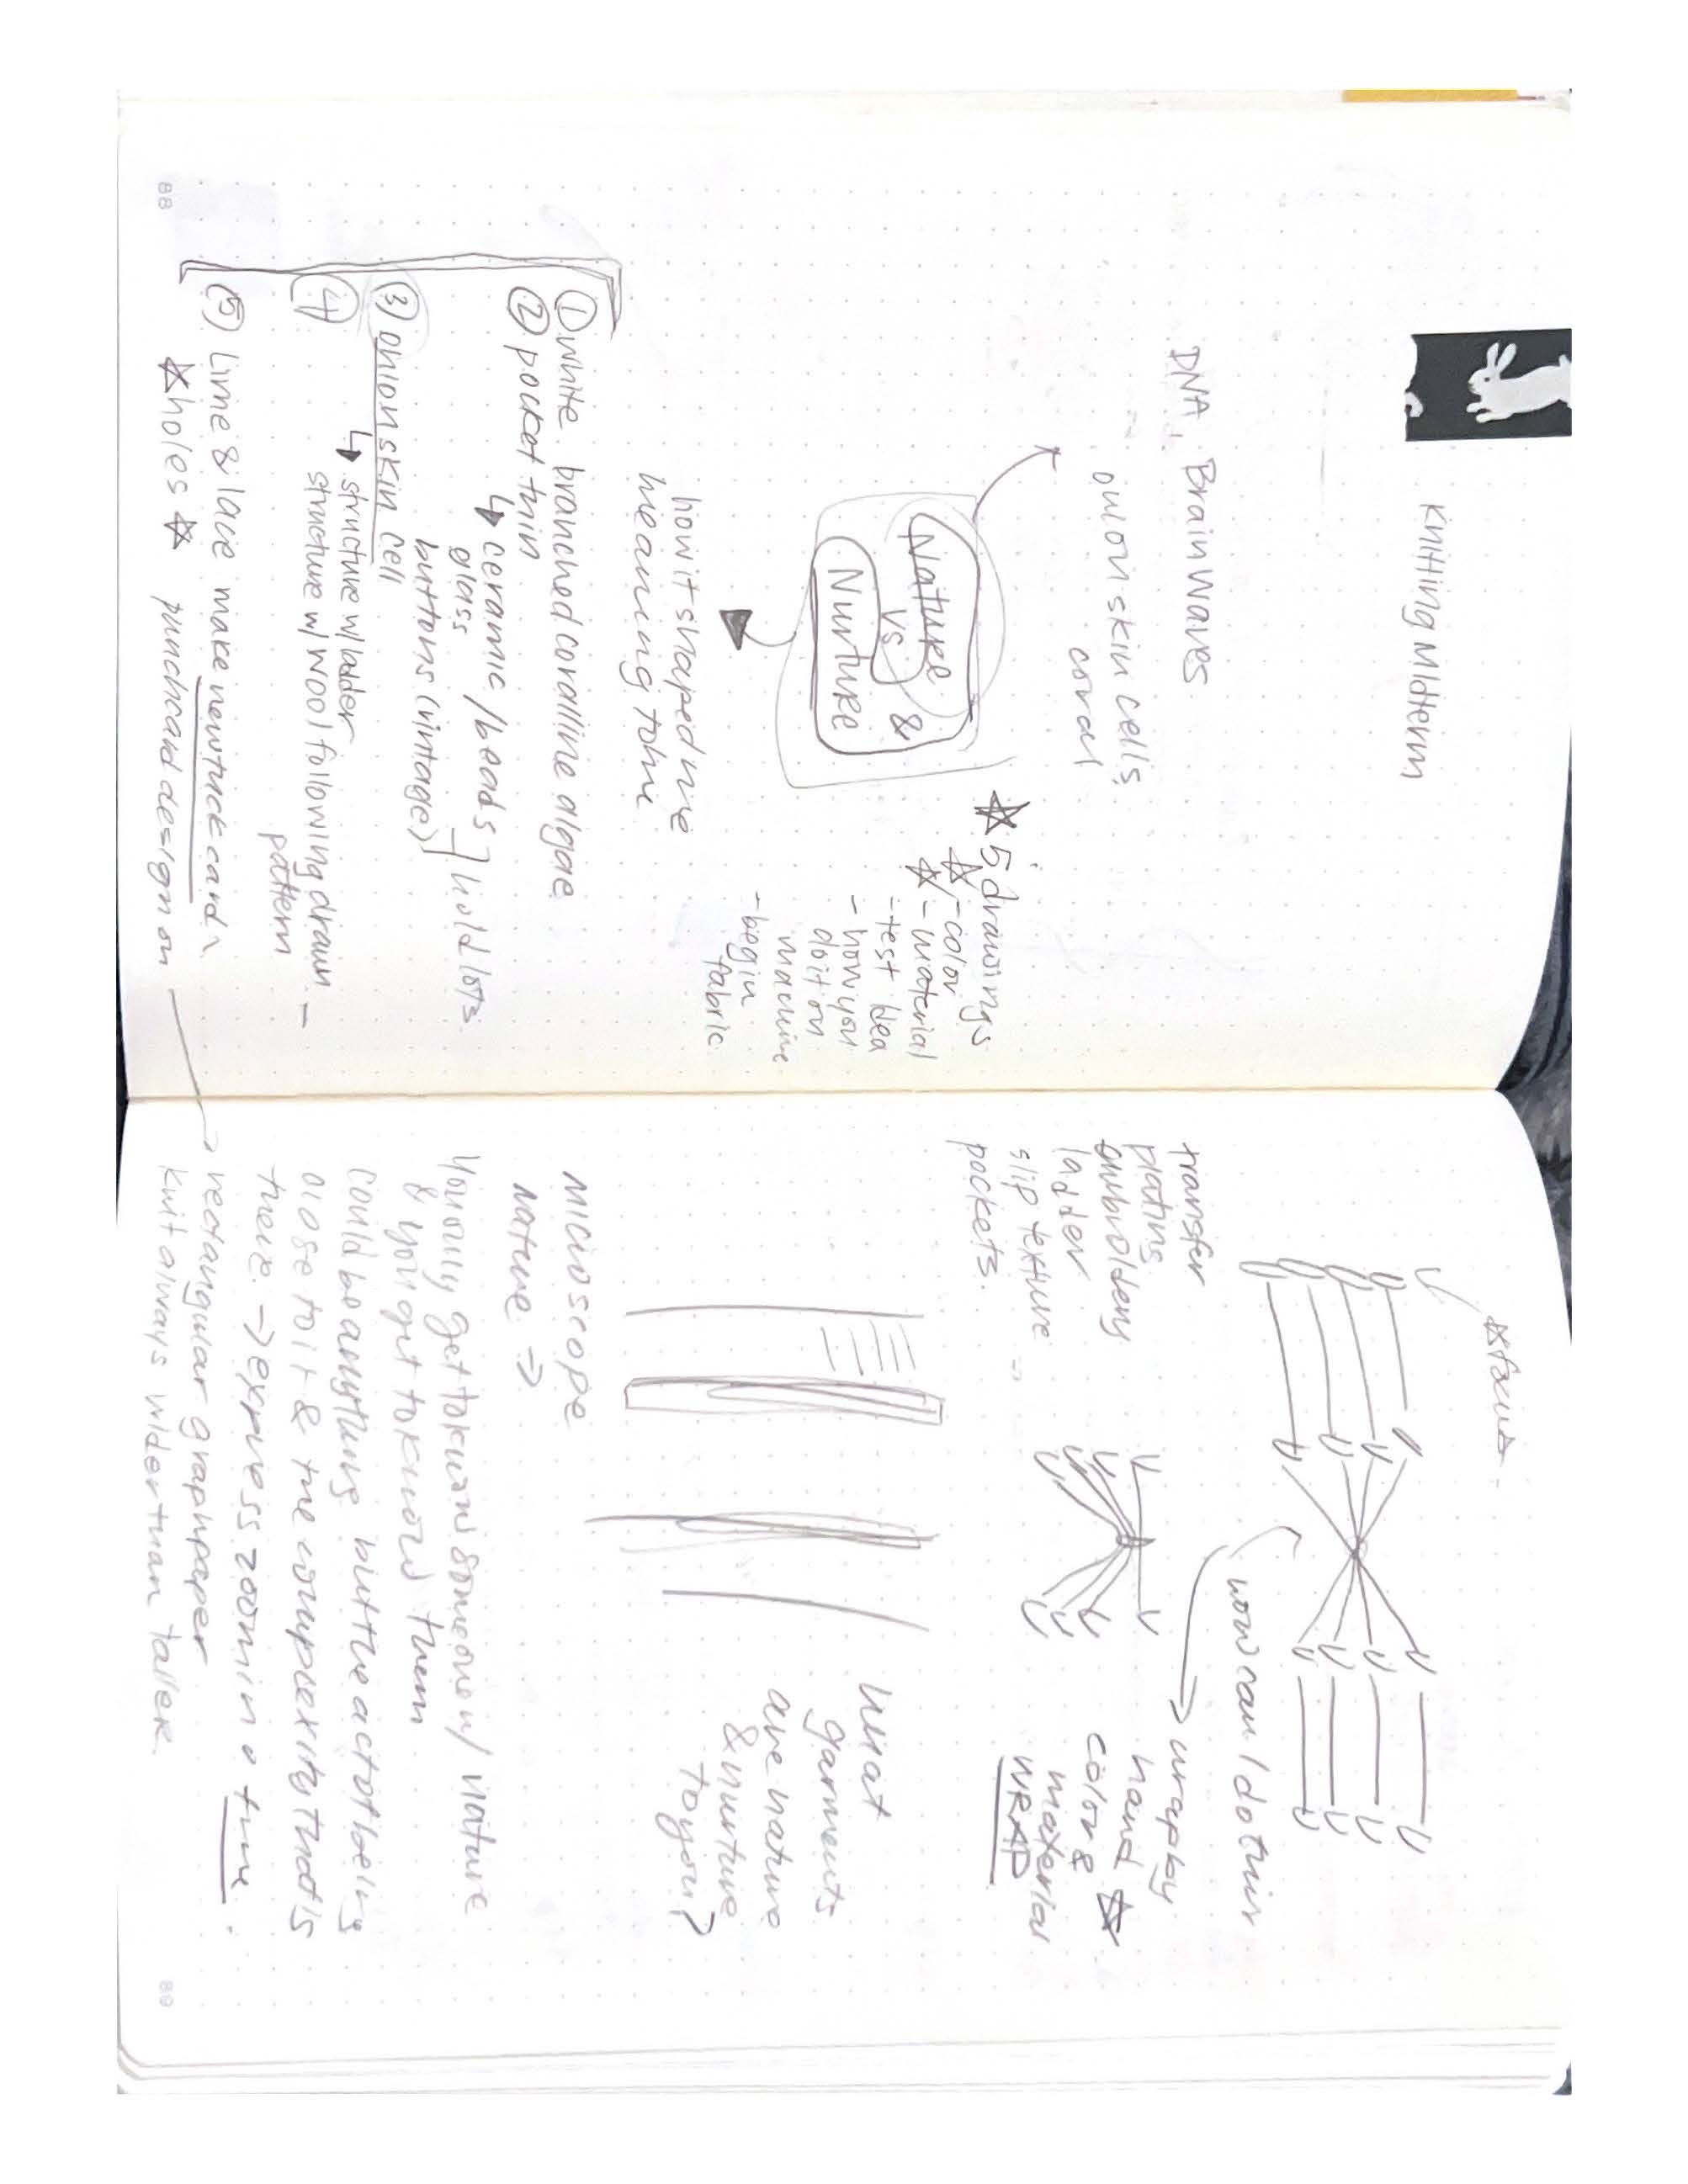 Knitting Midterm
DNA, Brain Waves
onion skin cells,
coral
Nature
vs &
Nurture
how it shaped me
meaning to me
5 drawings
- color
- material
- test idea
- how you
do it on
machine
- begin
fabric
① White branched coralline algae
② pocket thin
↳ ceramic / beads
glass
buttons (vintage)
hold lots
③ onion skin cell
↳ structure w/ ladder
④ structure w/ wool following drawn –
pattern
⑤ Lime & lace make new tuck card
☆ holes ☆ punchcard design on
88
☆ focus
how can I do this
→ wrap by
hand
color & ☆
material
WRAP
transfer
plating
embroidery
ladder
slip texture
pockets.
What
garments
are nature
& nurture
to you?
Microscope
Nature ⇒
You only get to know someone w/ nature
& you get to know them
Could be anything but the act of being
close to it & the complexity that is
there → express zoom in
→ rectangular graph paper
knit always wider than taller.
89